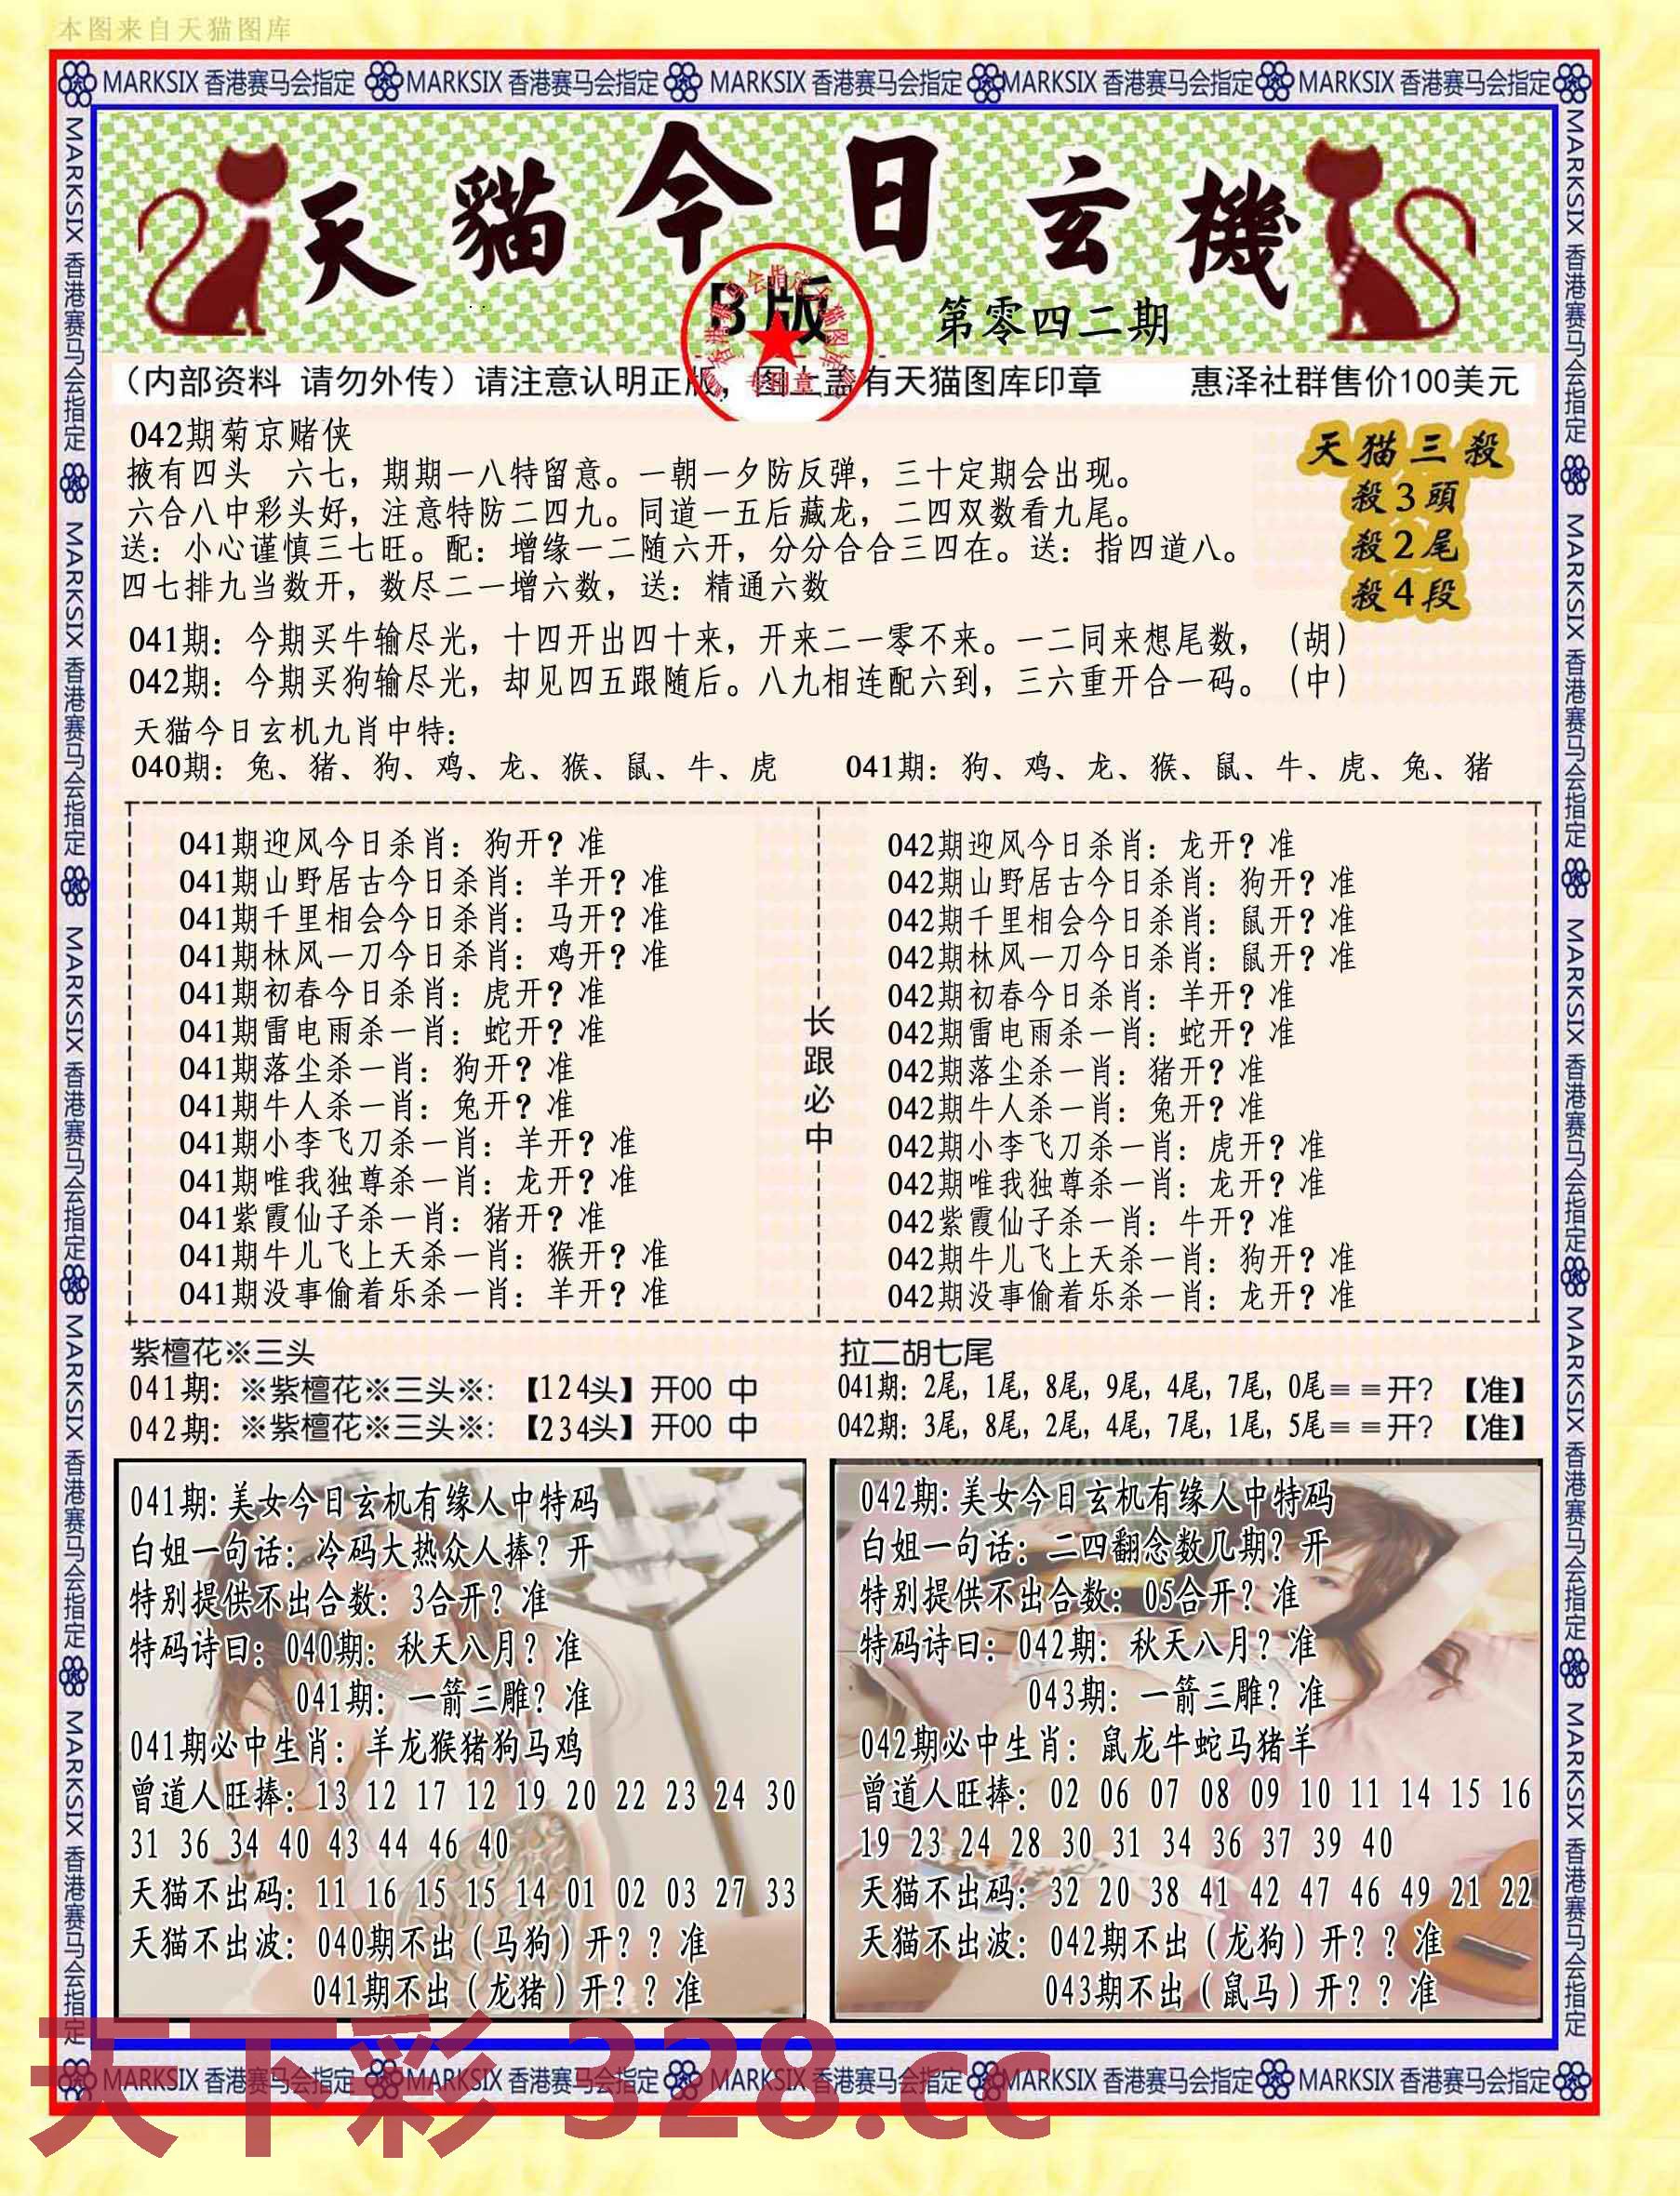 本图来自天猫图库
MARKSIX 香港赛马会指定 MARKSIX 香港赛马会指定 MARKSIX 香港赛马会指定 MARKSIX 香港赛马会指定 MARKSIX 香港赛马会指定
MARKSIX 香港赛马会指定 MARKSIX 香港赛马会指定 MARKSIX 香港赛马会指定 MARKSIX 香港赛马会指定 MARKSIX 香港赛马会指定
MARKSIX 香港赛马会指定 MARKSIX 香港赛马会指定 MARKSIX 香港赛马会指定 MARKSIX 香港赛马会指定 MARKSIX 香港赛马会指定
天貓今日玄機
B版
第零四二期
专用章
（内部资料 请勿外传）请注意认明正版，图上盖有天猫图库印章 惠泽社群售价100美元
042期菊京赌侠
掖有四头 六七，期期一八特留意。一朝一夕防反弹，三十定期会出现。
六合八中彩头好，注意特防二四九。同道一五后藏龙，二四双数看九尾。
送：小心谨慎三七旺。配：增缘一二随六开，分分合合三四在。送：指四道八。
四七排九当数开，数尽二一增六数，送：精通六数
天猫三殺
殺3頭
殺2尾
殺4段
041期：今期买牛输尽光，十四开出四十来，开来二一零不来。一二同来想尾数，（胡）
042期：今期买狗输尽光，却见四五跟随后。八九相连配六到，三六重开合一码。（中）
天猫今日玄机九肖中特：
040期：兔、猪、狗、鸡、龙、猴、鼠、牛、虎 041期：狗、鸡、龙、猴、鼠、牛、虎、兔、猪
041期迎风今日杀肖：狗开？准
041期山野居古今日杀肖：羊开？准
041期千里相会今日杀肖：马开？准
041期林风一刀今日杀肖：鸡开？准
041期初春今日杀肖：虎开？准
041期雷电雨杀一肖：蛇开？准
041期落尘杀一肖：狗开？准
041期牛人杀一肖：兔开？准
041期小李飞刀杀一肖：羊开？准
041期唯我独尊杀一肖：龙开？准
041紫霞仙子杀一肖：猪开？准
041期牛儿飞上天杀一肖：猴开？准
041期没事偷着乐杀一肖：羊开？准
长跟必中
042期迎风今日杀肖：龙开？准
042期山野居古今日杀肖：狗开？准
042期千里相会今日杀肖：鼠开？准
042期林风一刀今日杀肖：鼠开？准
042期初春今日杀肖：羊开？准
042期雷电雨杀一肖：蛇开？准
042期落尘杀一肖：猪开？准
042期牛人杀一肖：兔开？准
042期小李飞刀杀一肖：虎开？准
042期唯我独尊杀一肖：龙开？准
042紫霞仙子杀一肖：牛开？准
042期牛儿飞上天杀一肖：狗开？准
042期没事偷着乐杀一肖：龙开？准
紫檀花※三头
041期：※紫檀花※三头※：【124头】开00 中
042期：※紫檀花※三头※：【234头】开00 中
拉二胡七尾
041期：2尾，1尾，8尾，9尾，4尾，7尾，0尾＝＝开？【准】
042期：3尾，8尾，2尾，4尾，7尾，1尾，5尾＝＝开？【准】
041期:美女今日玄机有缘人中特码
白姐一句话：冷码大热众人捧？开
特别提供不出合数：3合开？准
特码诗曰：040期：秋天八月？准
041期：一箭三雕？准
041期必中生肖：羊龙猴猪狗马鸡
曾道人旺捧：13 12 17 12 19 20 22 23 24 30
31 36 34 40 43 44 46 40
天猫不出码：11 16 15 15 14 01 02 03 27 33
天猫不出波：040期不出（马狗）开？？准
041期不出（龙猪）开？？准
042期:美女今日玄机有缘人中特码
白姐一句话：二四翻念数几期？开
特别提供不出合数：05合开？准
特码诗曰：042期：秋天八月？准
043期：一箭三雕？准
042期必中生肖：鼠龙牛蛇马猪羊
曾道人旺捧：02 06 07 08 09 10 11 14 15 16
19 23 24 28 30 31 34 36 37 39 40
天猫不出码：32 20 38 41 42 47 46 49 21 22
天猫不出波：042期不出（龙狗）开？？准
043期不出（鼠马）开？？准
MARKSIX 香港赛马会指定 MARKSIX 香港赛马会指定 MARKSIX 香港赛马会指定 MARKSIX 香港赛马会指定 MARKSIX 香港赛马会指定
天下彩 328.cc